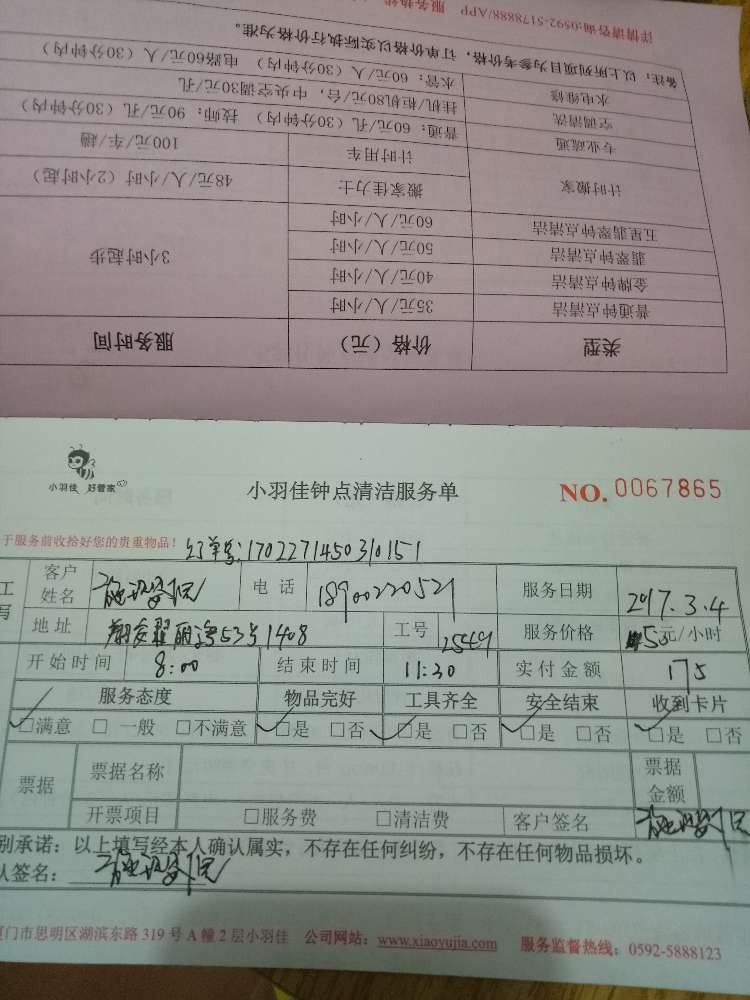 详情请咨询:0592-5178888/APP 服务热线
备注：以上所列项目为参考价格，订单价格以实际执行价格为准。
水电维修 水管：60元/人（30分钟内） 电路60元/人（30分钟内）
空调清洗 挂机/柜机80元/台，中央空调30元/孔
专业疏通 普通：60元/孔（30分钟内） 技师：90元/孔（30分钟内）
计时搬家 计时用车 100元/车/趟
搬家佳力士 48元/人/小时（2小时起）
五星翡翠钟点清洁 60元/人/小时
翡翠钟点清洁 50元/人/小时 3小时起步
金牌钟点清洁 40元/人/小时
普通钟点清洁 35元/人/小时
类型 价格（元） 服务时间
小羽佳 好管家
小羽佳钟点清洁服务单
NO. 0067865
于服务前收拾好您的贵重物品！ 订单号:1702271450310151
工 客户姓名 电话 18900220521 服务日期 2017.3.4
写 地址 53号1408 工号 25549 服务价格 元/小时
开始时间 8:00 结束时间 11:30 实付金额 175
服务态度 物品完好 工具齐全 安全结束 收到卡片
□满意 □一般 □不满意 □是 □否 □是 □否 □是 □否 □是 □否
票据 票据名称 票据金额
开票项目 □服务费 □清洁费 客户签名
别承诺：以上填写经本人确认属实，不存在任何纠纷，不存在任何物品损坏。
人签名：
门市思明区湖滨东路 319 号 A 幢 2 层小羽佳 公司网站：www.xiaoyujia.com 服务监督热线：0592-5888123